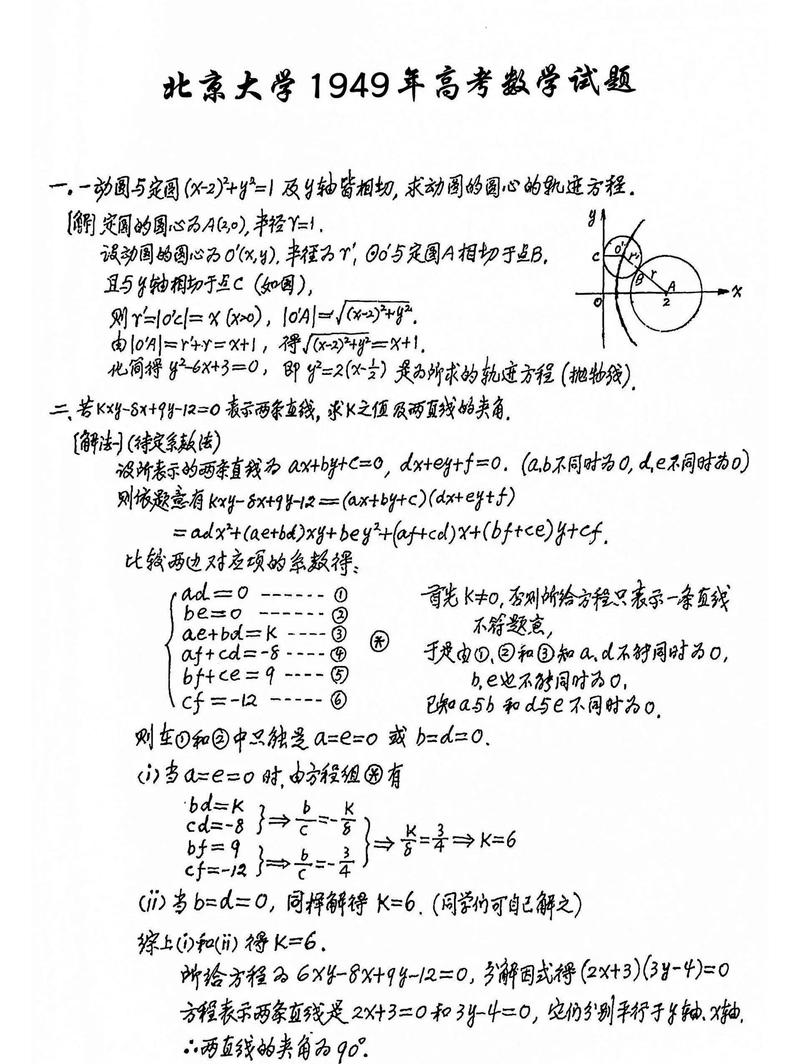 北京大学1949年高考数学试题
一. 一动圆与定圆(x-2)²+y²=1及y轴皆相切, 求动圆的圆心的轨迹方程.
[解] 定圆的圆心为A(2,0), 半径r=1.
设动圆的圆心为O'(x,y). 半径为r', ⊙O'与定圆A相切于点B.
且与y轴相切于点C (如图),
则r'=|O'C|=x(x>0), |O'A|=√(x-2)²+y².
由|O'A|=r'+r=x+1, 得√(x-2)²+y²=x+1.
化简得y²-6x+3=0, 即y²=2(x-1/2)是为所求的轨迹方程(抛物线).
y
C
O'
r'
B
r
A
O
2
x
二. 若Kxy-8x+9y-12=0表示两条直线, 求K之值及两直线的夹角.
[解法一](待定系数法)
设所表示的两条直线为ax+by+c=0, dx+ey+f=0. (a,b不同时为0, d,e不同时为0)
则依题意有Kxy-8x+9y-12=(ax+by+c)(dx+ey+f)
=adx²+(ae+bd)xy+bey²+(af+cd)x+(bf+ce)y+cf.
比较两边对应项的系数得:
ad=0 ------ ①
be=0 ------ ②
ae+bd=K ---- ③
af+cd=-8 ---- ④
bf+ce=9 ---- ⑤
cf=-12 ---- ⑥
✽
首先K≠0, 否则所给方程只表示一条直线
不符题意,
于是由①、②和③知a、d不能同时为0,
b,e也不能同时为0,
已知a与b和d与e不同时为0.
则在①和②中只能是a=e=0或b=d=0.
(i)当a=e=0时, 由方程组✽有
bd=K
cd=-8 }⇒b/c=-K/8
bf=9
cf=-12 }⇒b/c=-3/4 }⇒K/8=3/4⇒K=6
(ii)当b=d=0, 同样解得K=6. (同学们可自己解之)
综上(i)和(ii)得K=6.
所给方程为6xy-8x+9y-12=0, 分解因式得(2x+3)(3y-4)=0
方程表示两条直线是2x+3=0和3y-4=0, 它们分别平行于y轴、x轴.
∴两直线的夹角为90°.